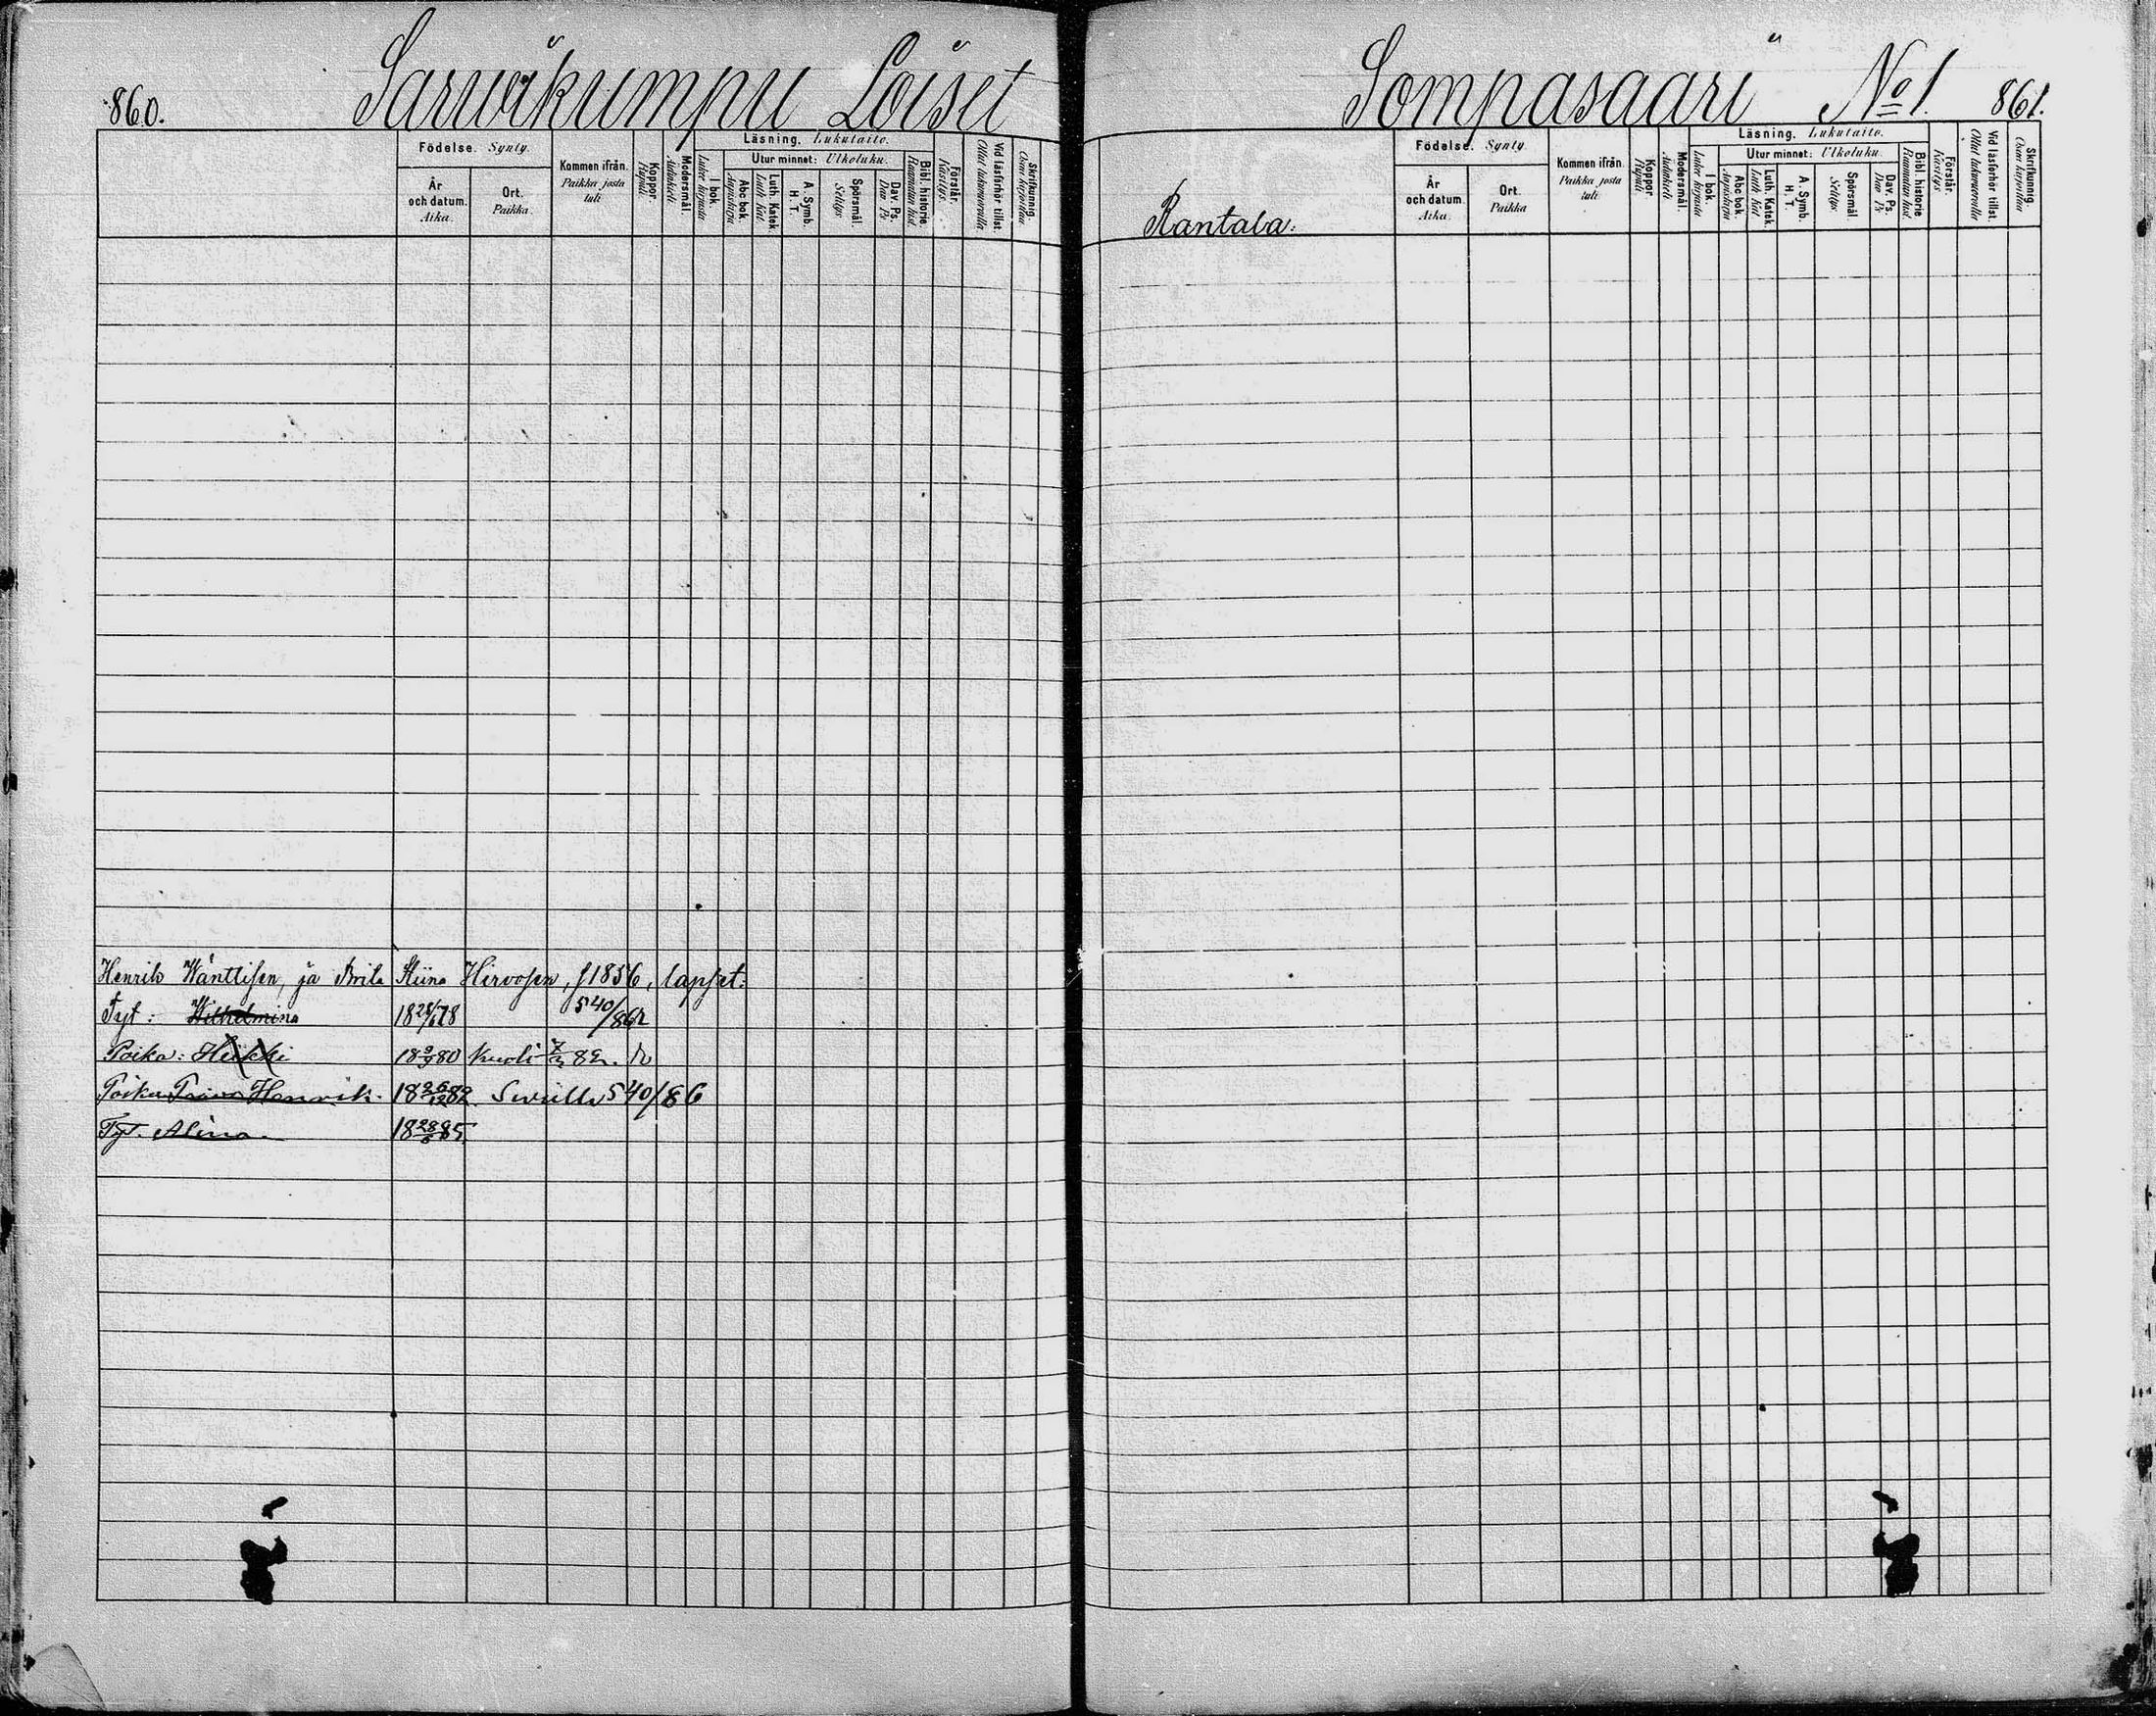 860.
Sarvikumpu Loiset
Födelse. Synty.
År och datum. Aika.
Ort. Paikka.
Kommen ifrån. Paikka josta tuli
Koppor. Rupuli
Modersmål. Äidinkieli
Läsning. Lukutaito.
I bok. Lukee kirjasta
Utur minnet: Ulkoluku.
Abc bok. Aapiskirja
Luth. Katek. Luth. Kat.
A. Symb. H. T.
Spörsmål. Selitys
Dav. Ps. Dav. Ps.
Bibl. historie. Raamatun hist.
Förstår. Käsitys.
Vid läsförhör tillst. Ollut lukuvuorolla
Skrifkunnig. Osaa kirjoittaa
Henrik Wänttisen, ja Brita Stiina Hirvosen, f 1856, lapset:
Tyt: Wilhelmina 18 78 540/86
Poika: Heikki 18 9/9 80 kuoli 82.
Poika Henrik. 18 26/12 82. 540/86
Tyt. Alina. 18 85.
Sompasaari No 1.
861.
Rantala.
Födelse. Synty.
År och datum. Aika.
Ort. Paikka
Kommen ifrån. Paikka josta tuli
Koppor. Rupuli
Modersmål. Äidinkieli
Läsning. Lukutaito.
I bok. Lukee kirjasta
Utur minnet: Ulkoluku.
Abc bok. Aapiskirja
Luth. Katek. Luth. Kat.
A. Symb. H. T.
Spörsmål. Selitys
Dav. Ps. Dav. Ps
Bibl. historie Raamatun hist.
Förstår. Käsitys
Vid läsförhör tillst. Ollut lukuvuorolla
Skrifkunnig. Osaa kirjoittaa